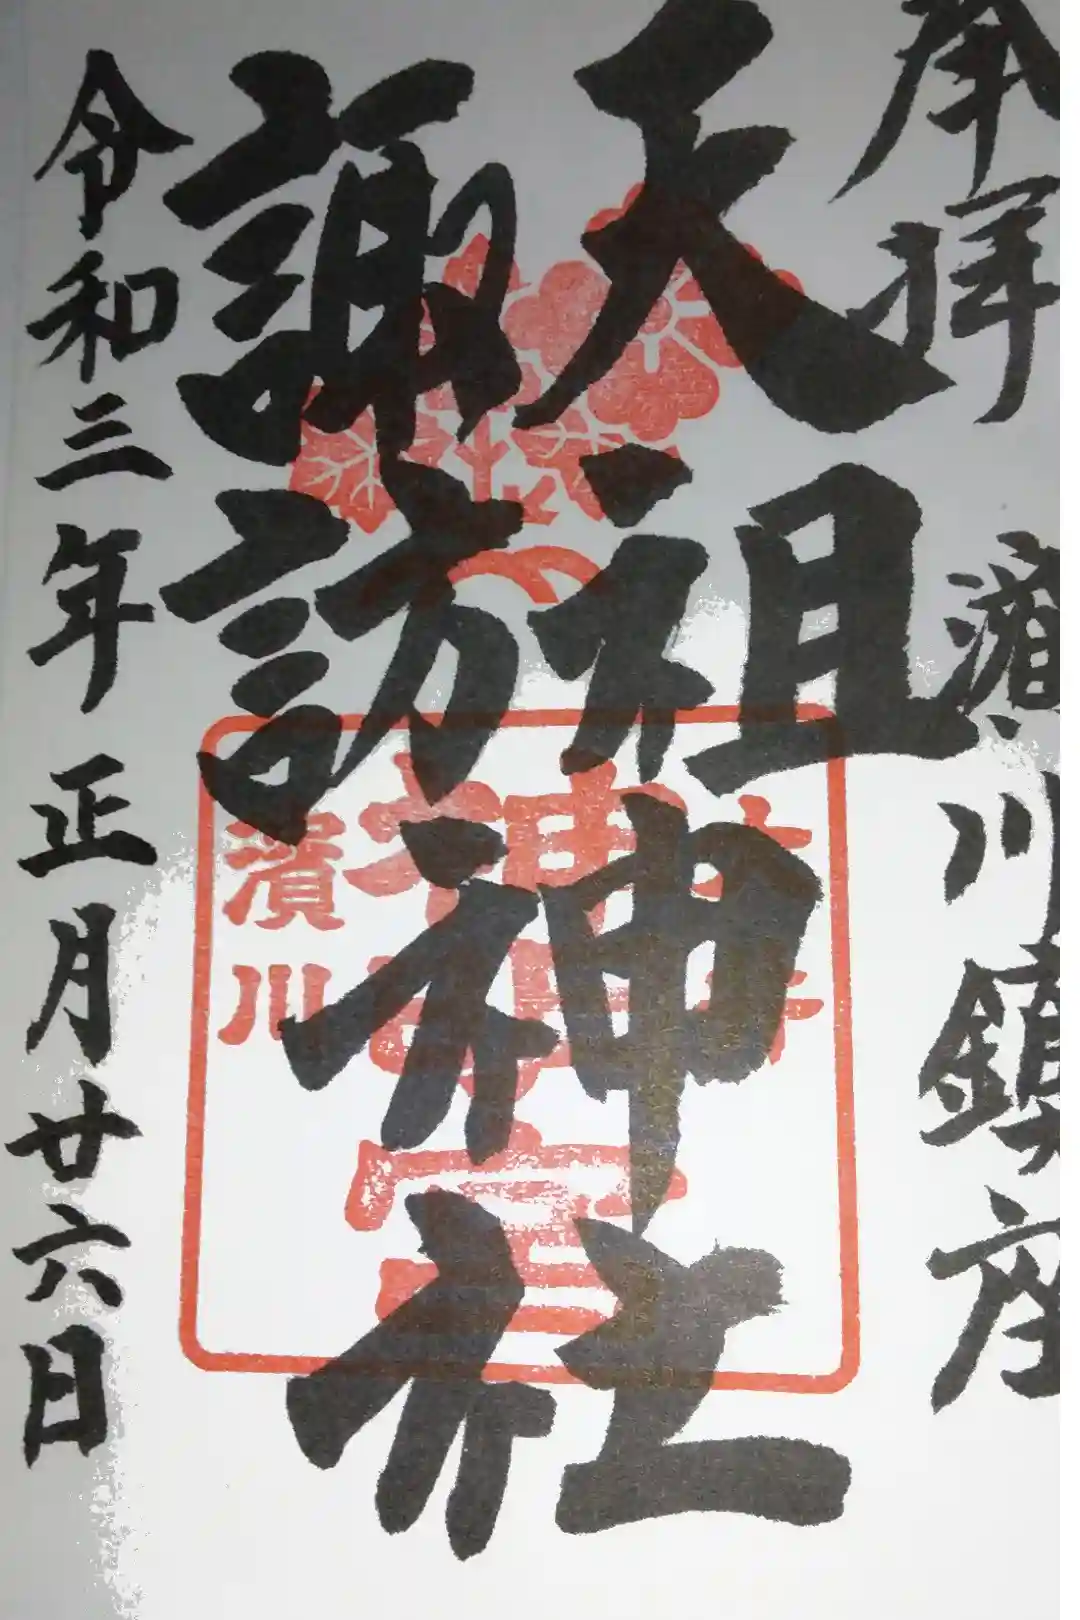 奉拝
濱川鎮座
天祖
諏訪
神社
令和三年正月廿六日
濱川